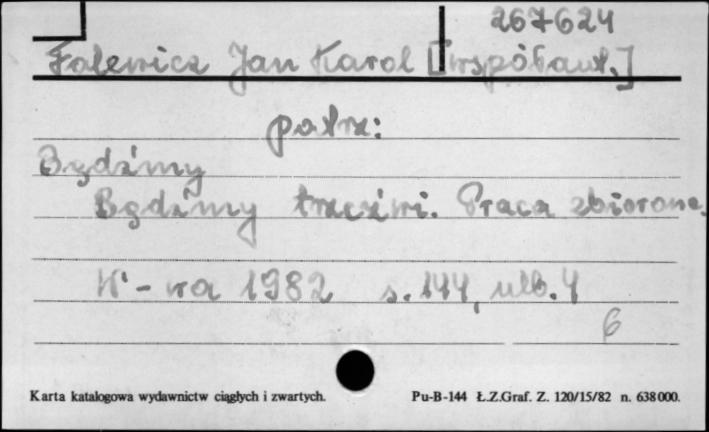 267624
Falewicz Jan Karol [współaut.]
patrz:
Bądźmy
Bądźmy trzeźwi. Praca zbiorowa.
W-wa 1982 s. 144, nlb. 4
6
Karta katalogowa wydawnictw ciągłych i zwartych.
Pu-B-144 Ł.Z.Graf. Z. 120/15/82 n. 638000.